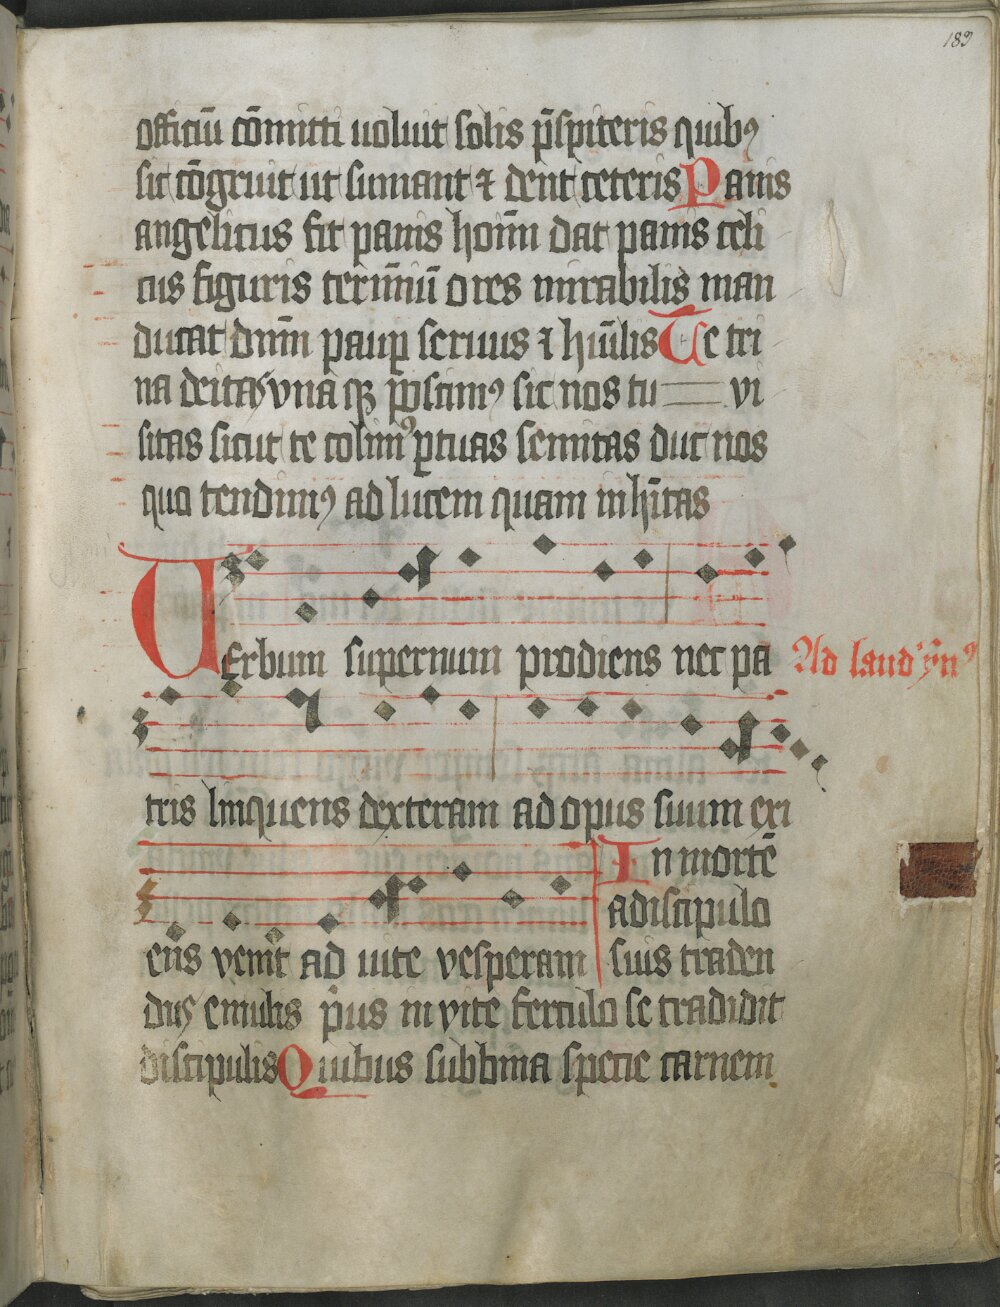 183
officiū cōmitti uoluit solis p̄spiteris quibꝫ
sic cōgruit ut sumant ⁊ dent ceteris Panis
angelicus fit panis hom̄n dat panis celi
cus figuris terīmū O res mirabilis man
ducat dn̄m paup seruus ⁊ hūilis Te tri
na deitas vna qꝫ poscimꝰ sic nos tu vi
sitas sicut te colimꝰ ꝑ tuas semitas duc nos
quo tendimꝰ ad lucem quam inh̄itas
VErbum supernum prodiens nec pa
Ad laud' ẏn̄ꝰ
tris linquens dexteram ad opus suum exi
In mortē
a discipulo
ens venit ad uite vesperam suis traden
dus emulis p̄us in vite ferculo se tradidit
discipulis Quibus sub bina specie carnem